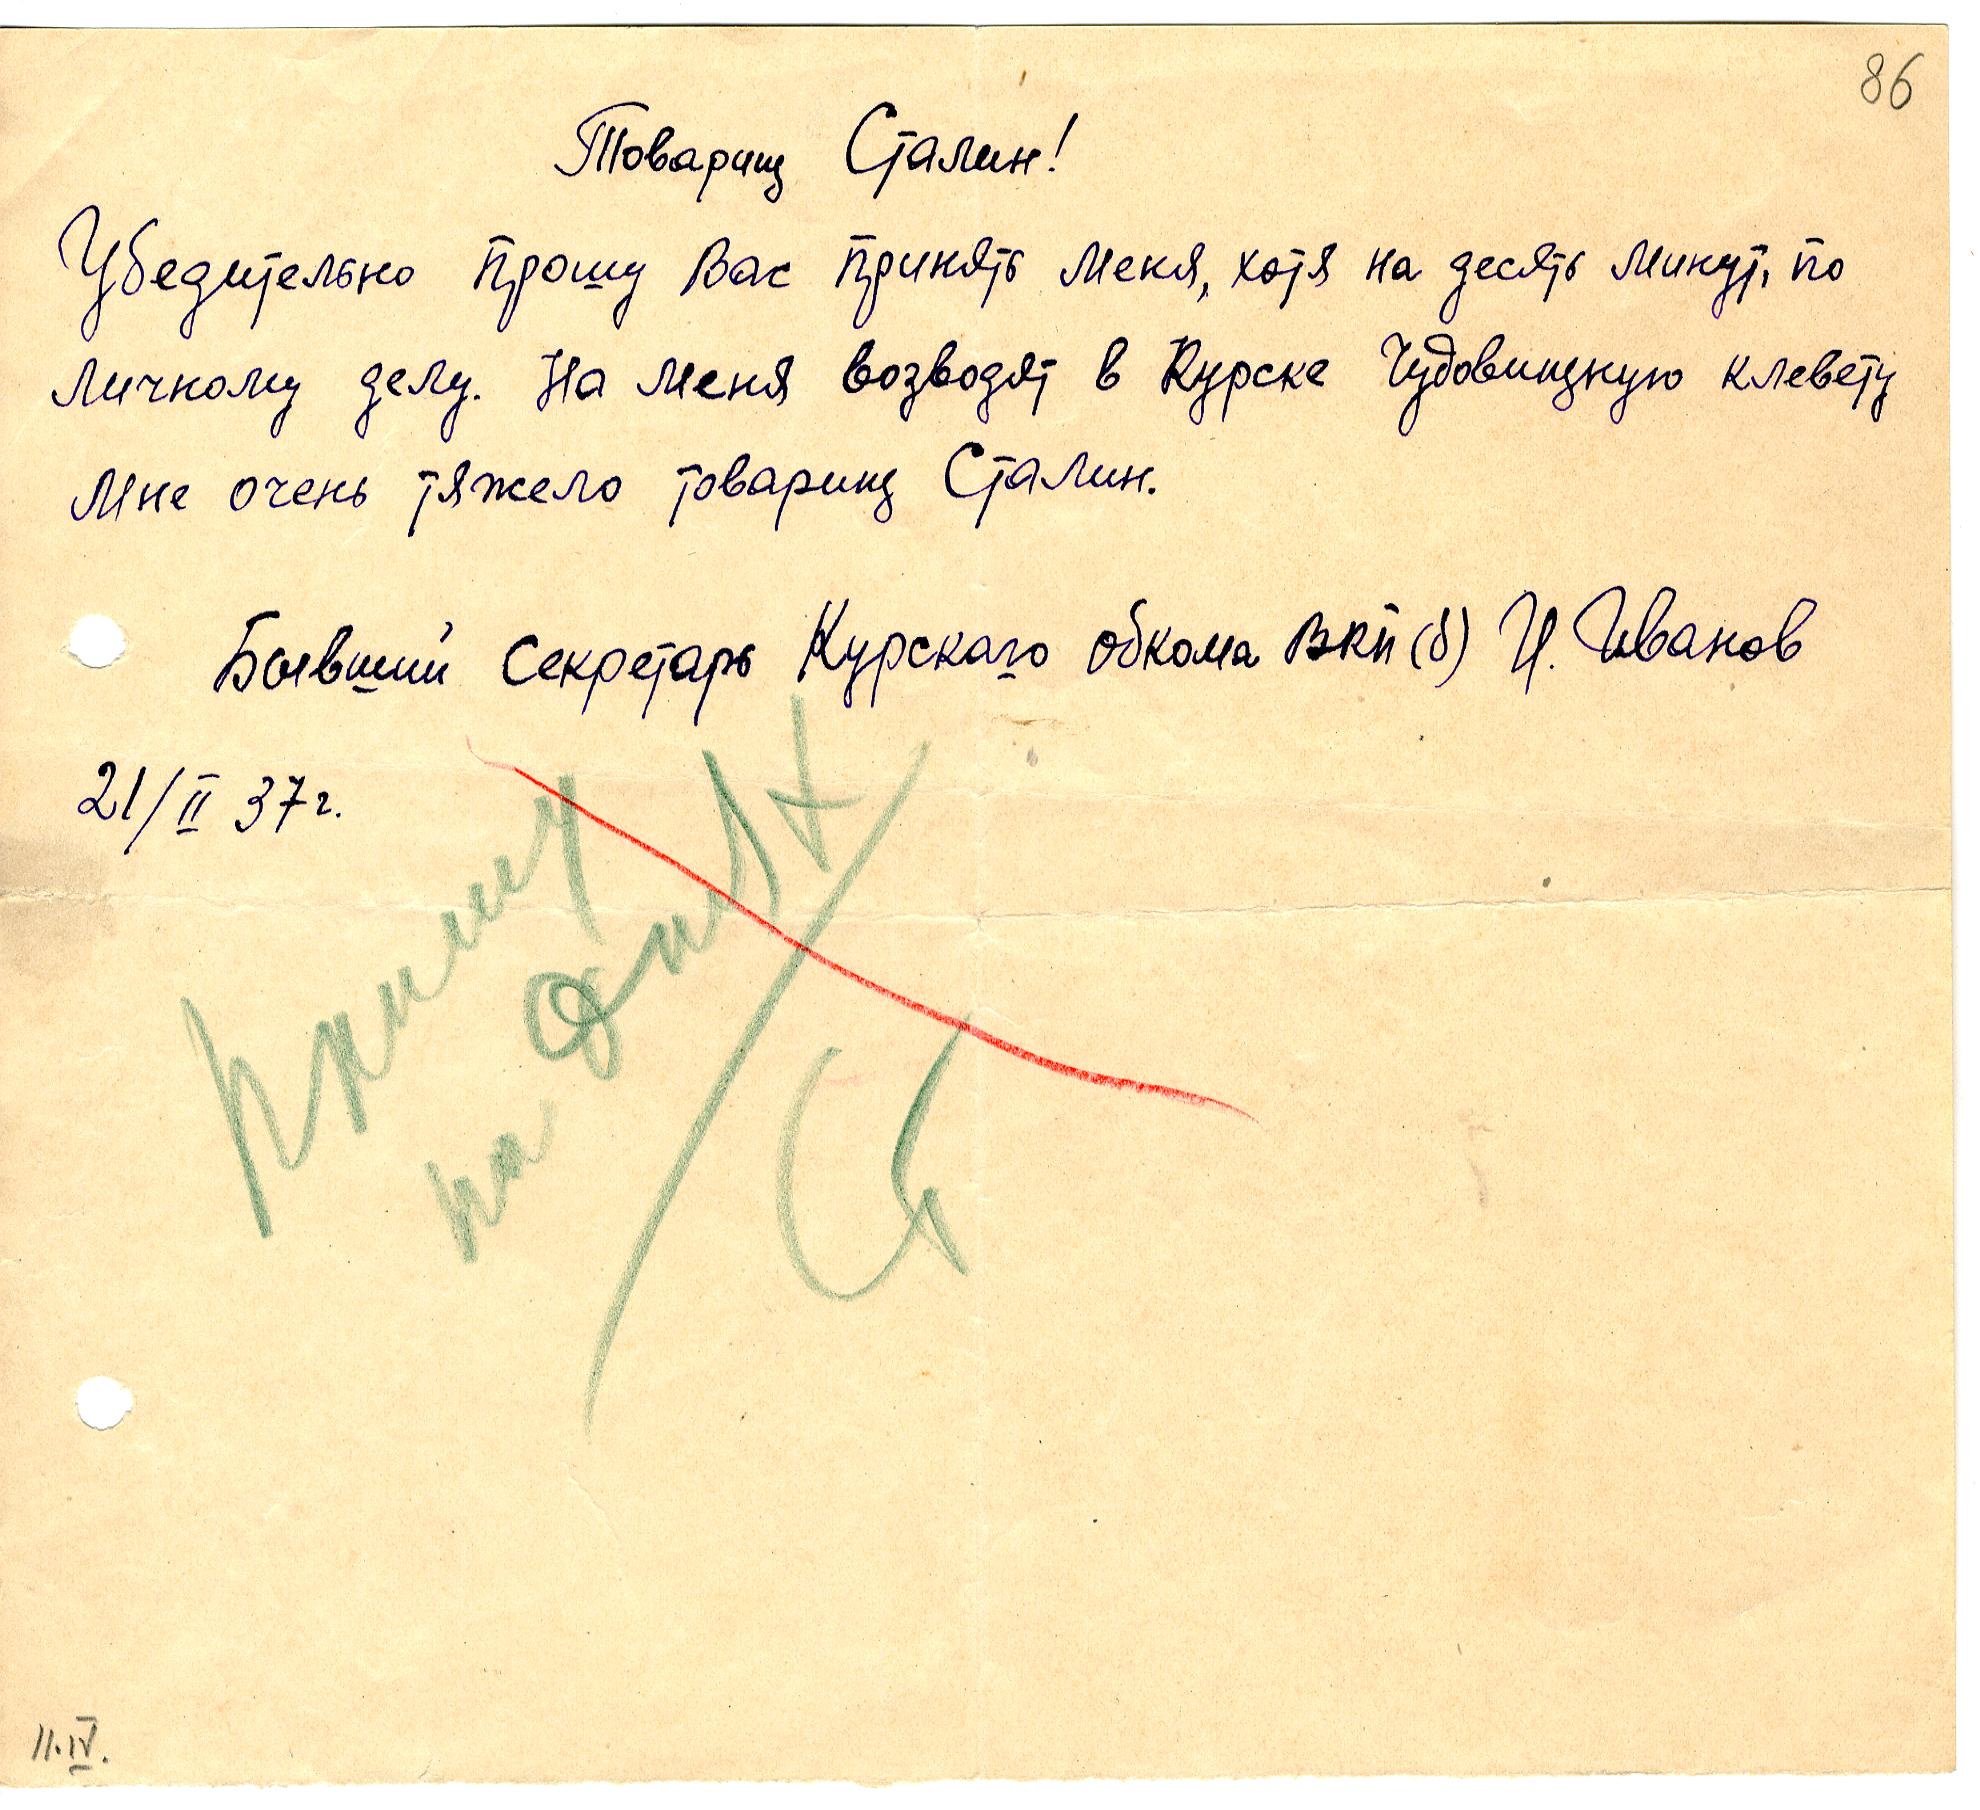 86
Товарищ Сталин!
Убедительно прошу Вас принять меня, хотя на десять минут, по
личному делу. На меня возводят в Курске чудовищную клевету
Мне очень тяжело товарищ Сталин.
Бывший секретарь Курскаго обкома ВКП(б) И. Иванов
21/II 37г.
Приму
на днях
Ст
11.IV.